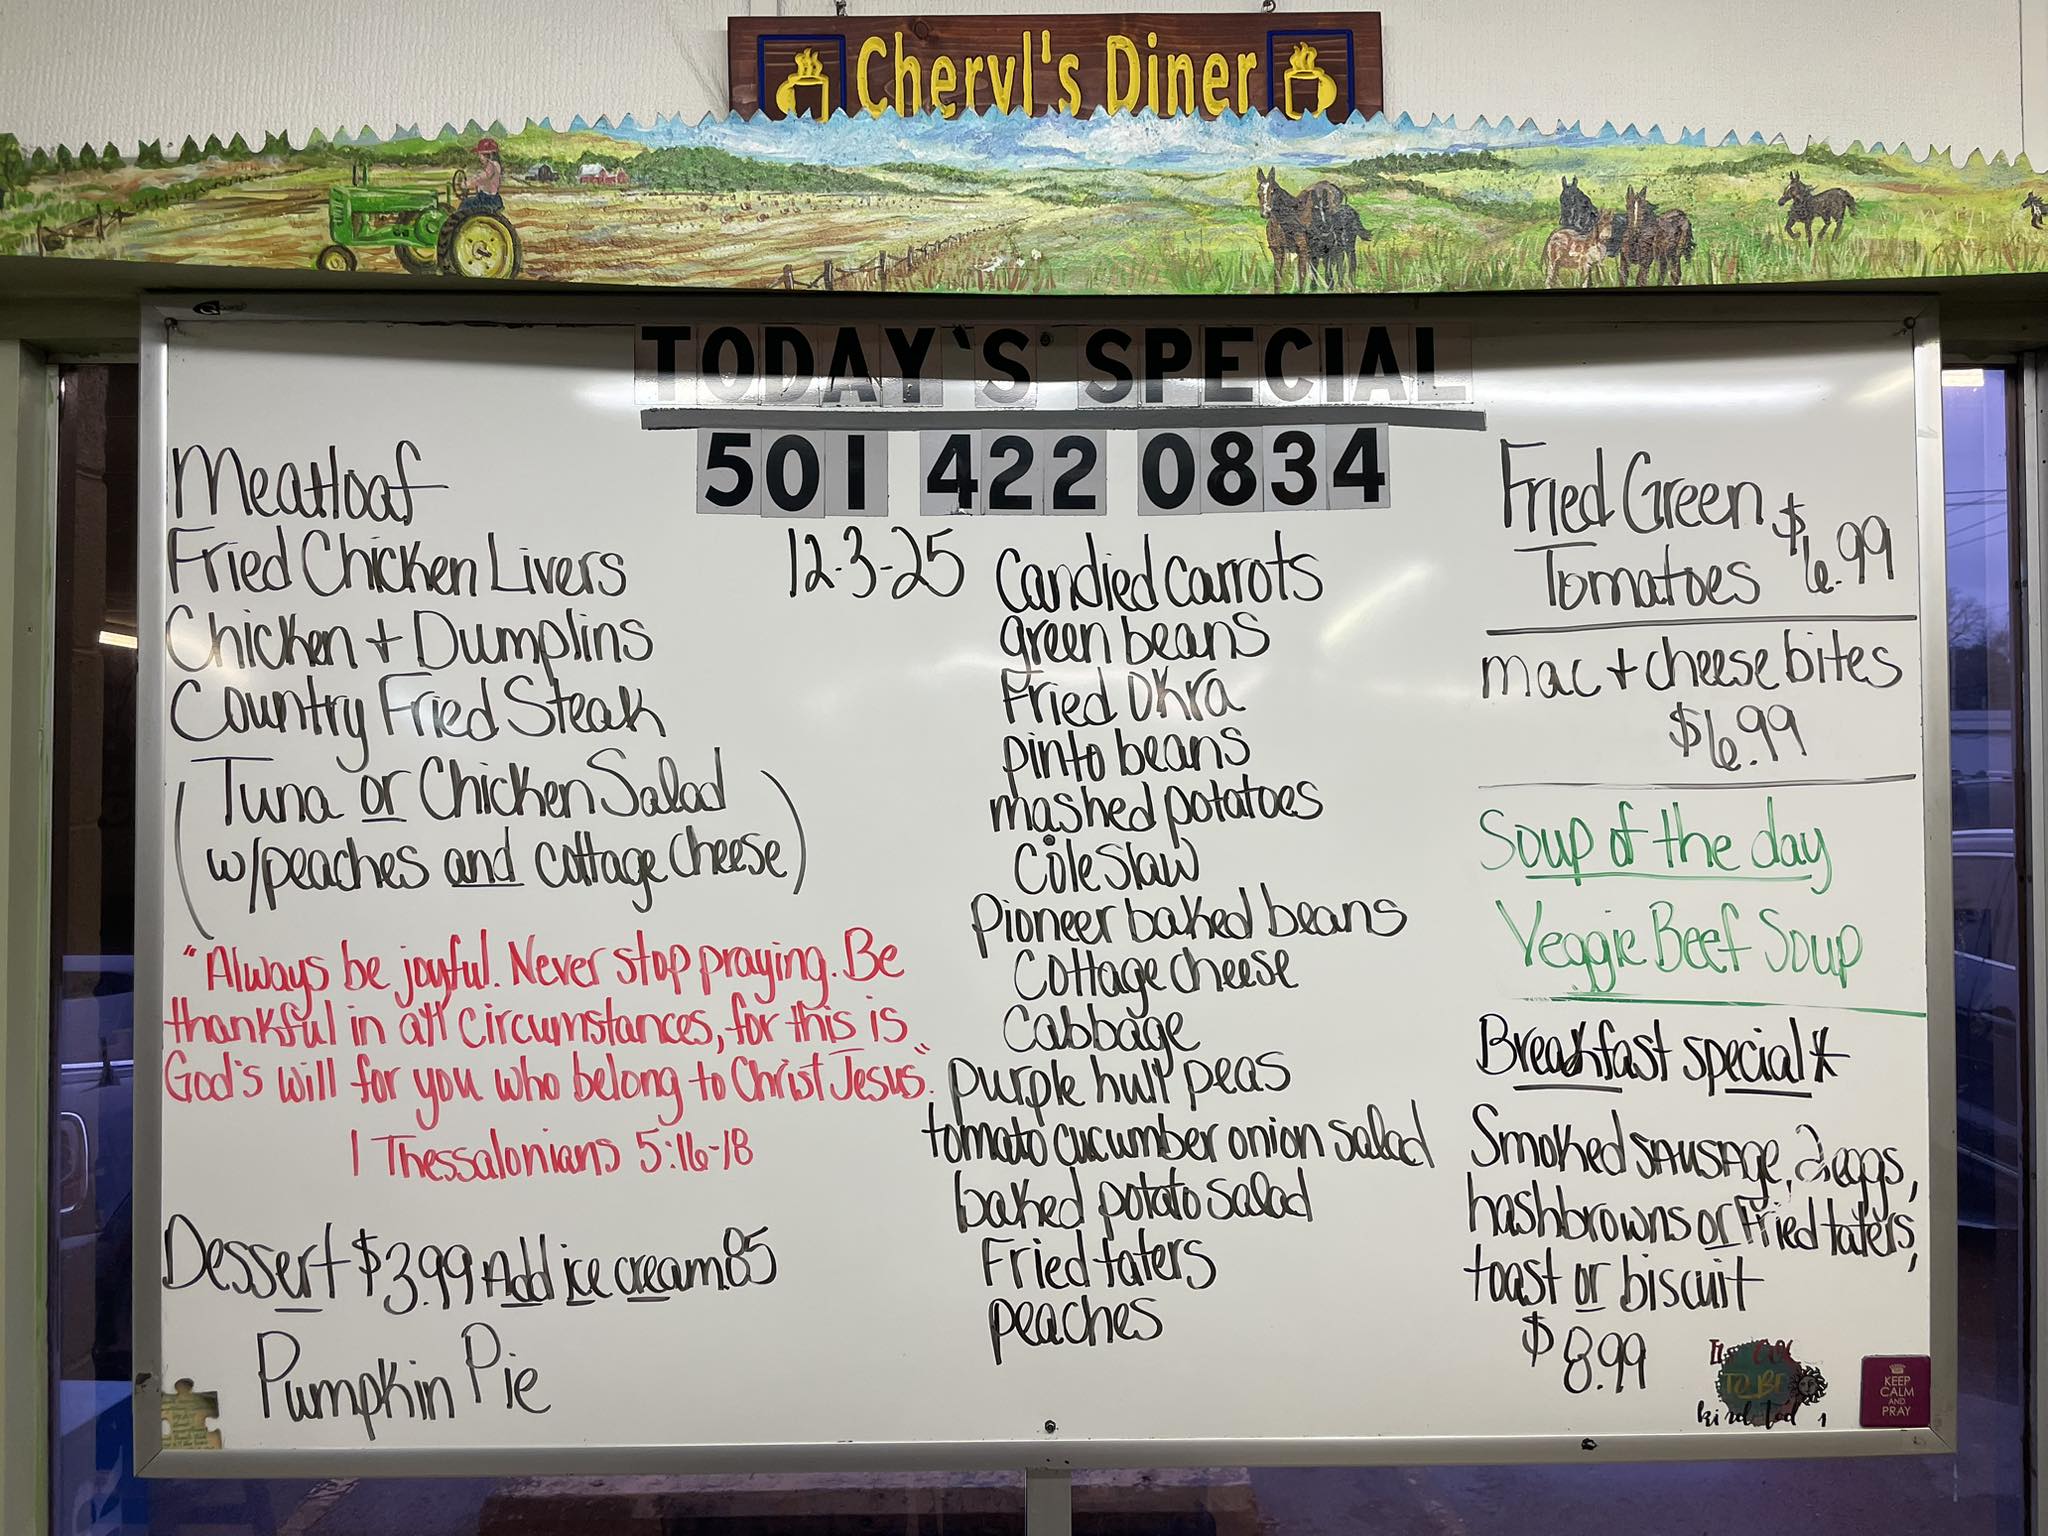 Cheryl's Diner
TODAY'S SPECIAL
501 422 0834
12-3-25
Meatloaf
Fried Chicken Livers
Chicken + Dumplins
Country Fried Steak
Tuna or Chicken Salad
(w/peaches and cottage cheese)
"Always be joyful. Never stop praying. Be
thankful in all circumstances, for this is
God's will for you who belong to Christ Jesus."
1 Thessalonians 5:16-18
Dessert $3.99 Add ice cream .85
Pumpkin Pie
Candied carrots
green beans
Fried Okra
pinto beans
mashed potatoes
Cole Slaw
Pioneer baked beans
Cottage cheese
Cabbage
purple hull peas
tomato cucumber onion salad
baked potato salad
Fried taters
peaches
Fried Green
Tomatoes $6.99
mac + cheese bites
$6.99
Soup of the day
Veggie Beef Soup
Breakfast special*
Smoked sausage, 2 eggs,
hashbrowns or Fried taters,
toast or biscuit
$8.99
TO BE
KEEP
CALM
AND
PRAY